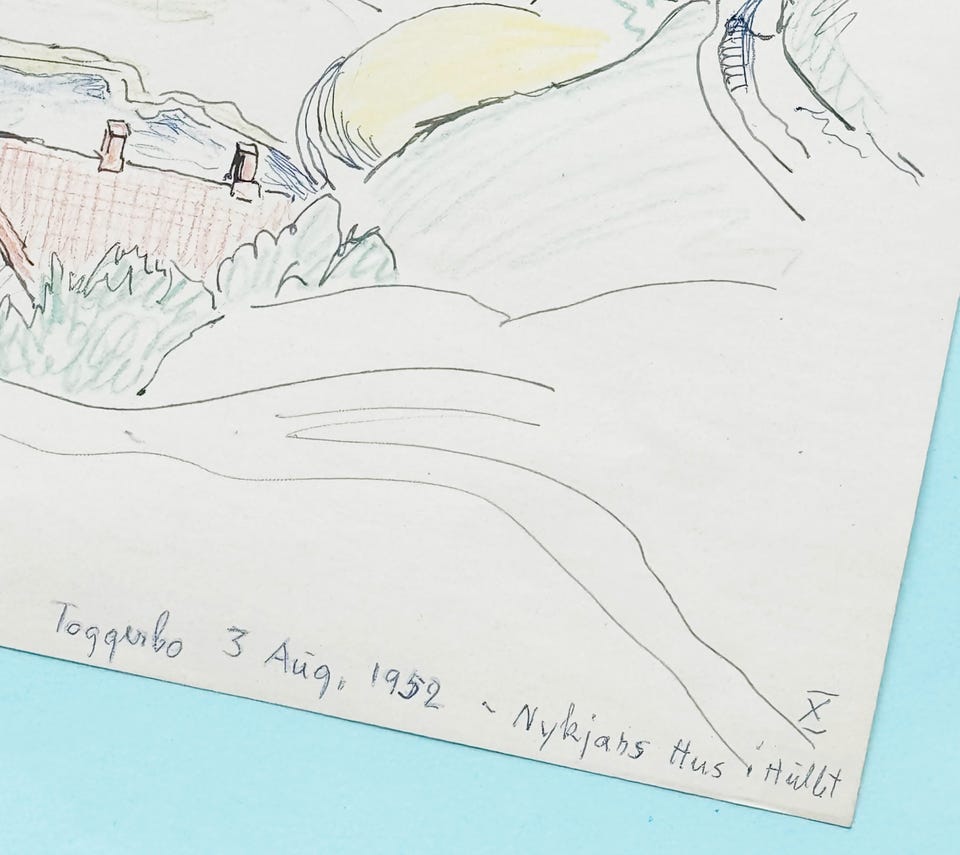 X
Toggerbo 3 Aug. 1952 - Nykjärs Hus i Hullet